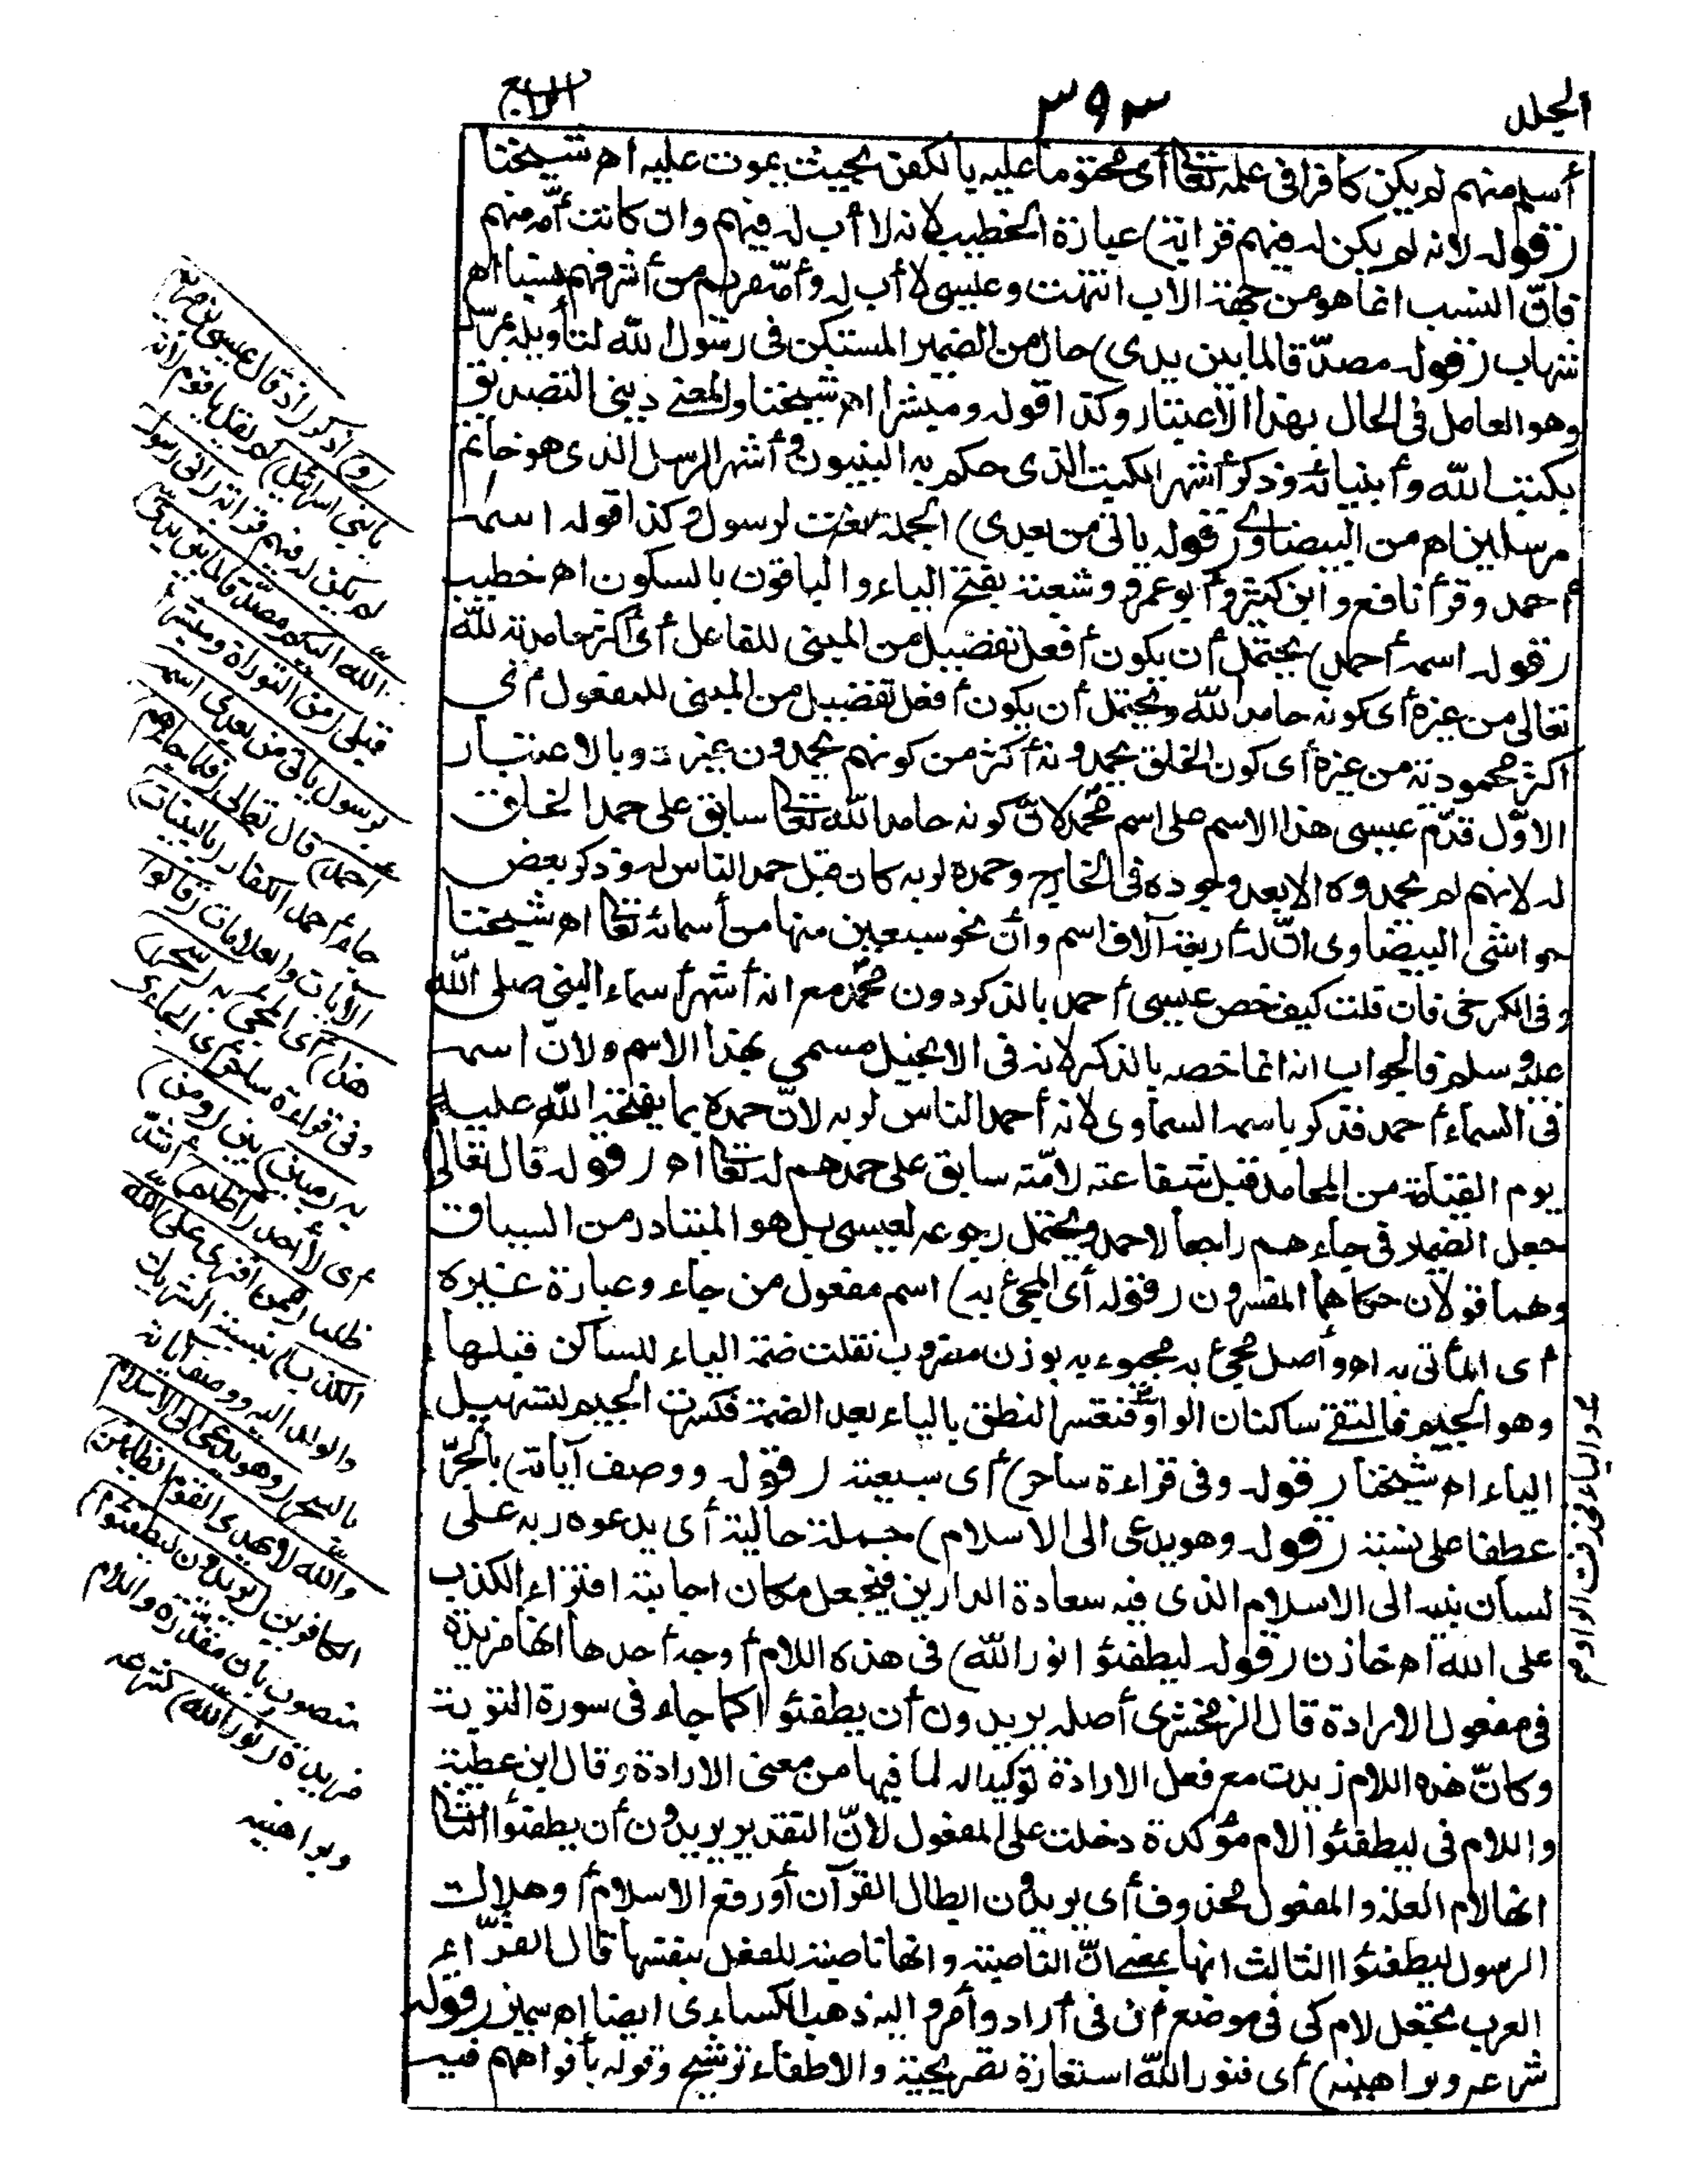 الجلد ٣٩٣ الرابع
أسلم منهم لم يكن كافرا فى علمه تعالى أى محتوما عليه بالكفر بحيث يموت عليه اه شيخنا
(قوله لانه لم يكن له فيهم قرابة) عبارة الخطيب لانه لا أب له فيهم وان كانت أمه منهم
فانّ النسب انما هو من جهة الاب انتهت وعيسى لا أب له وأمّه مريم من أشرفهم نسبا اه
شهاب (قوله مصدّقا لما بين يدى) حال من الضمير المستكن فى رسول الله لتأويله بمرسل
وهو العامل فى الحال بهذا الاعتبار وكذا قوله ومبشرا اه شيخنا والمعنى دينى التصديق
بكتب الله وأنبيائه وذكر أشهر الكتب الذى حكم به النبيون وأشهر الرسل الذى هو خاتم
مرسلين اه من البيضاوى (قوله يأتى من بعدى) الجملة نعت لرسول وكذا قوله اسمه
أحمد وقرأ نافع وابن كثير وأبو عمرو وشعبة بفتح الياء والباقون بالسكون اه خطيب
(قوله اسمه أحمد) يحتمل أن يكون أفعل تفضيل من المبنى للفاعل أى أكثر حامدية لله
تعالى من غيره أى كونه حامدا لله ويحتمل أن يكون أفعل تفضيل من المبنى للمفعول أى
اكثر محمودية من غيره أى كون الخلق يحمدونه أكثر من كونهم يحمدون غيره وبالاعتبار
الاوّل قدّم عيسى هذا الاسم على اسم محمد لانّ كونه حامدا لله تعالى سابق على حمد الخلق
له لانهم لم يحمدوه الا بعد وجوده فى الخارج وحمده لربه كان قبل حمد الناس له وذكر بعض
حواشى البيضاوى انّ له أربعة آلاف اسم وأن نحو سبعين منها من أسمائه تعالى اه شيخنا
وفى الكرخى فان قلت كيف خص عيسى أحمد بالذكر دون محمد مع انه أشهر أسماء النبى صلى الله
عليه وسلم فالجواب انه انما خصه بالذكر لانه فى الانجيل مسمى بهذا الاسم ولانّ اسمه
فى السماء أحمد فذكر باسمه السماوى لانه أحمد الناس لربه لانّ حمده بما يفتحه الله عليه
يوم القيامة من المحامد قبل شفاعته لامّته سابق على حمدهم له تعالى اه (قوله قال تعالى)
جعل الضمير فى جاءهم راجعا لاحمد ويحتمل رجوعه لعيسى بل هو المتبادر من السياق
وهما قولان حكاهما المفسرون (قوله أى المجىء به) اسم مفعول من جاء وعبارة غيره
أى المأتى به اه وأصل مجىء به مجيوء به بوزن مضروب نقلت ضمة الياء للساكن قبلها
وهو الجيم فالتقى ساكنان الواو فتعسر النطق بالياء بعد الضمة فكسرت الجيم لتسهيل
الياء اه شيخنا (قوله وفى قراءة ساحر) أى سبعية (قوله ووصف آياته) بالجرّ
عطفا على نسبة (قوله وهو يدعى الى الاسلام) جملة حالية أى يدعوه ربه على
لسان نبيه الى الاسلام الذى فيه سعادة الدارين فيجعل مكان اجابته افتراء الكذب
على الله اه خازن (قوله ليطفئوا نور الله) فى هذه اللام أوجه أحدها انها مزيدة
فى مفعول الارادة قال الزمخشرى أصله يريدون أن يطفئوا كما جاء فى سورة التوبة
وكانّ هذه اللام زيدت مع فعل الارادة توكيدا له لما فيها من معنى الارادة وقال ابن عطية
واللام فى ليطفئوا لام مؤكدة دخلت على المفعول لانّ التقدير يريدون أن يطفئوا الثانى
انها لام العلة والمفعول محذوف أى يريدون ابطال القرآن أو رفع الاسلام أو هلاك
الرسول ليطفئوا الثالث انها بمعنى ان الناصبة وانها ناصبة للفعل بنفسها قال الفرّاء
العرب تجعل لام كى فى موضع أن فى أراد وأمر واليه ذهب الكسائى ايضا اه سمين (قوله
شرعه وبراهينه) أى فنور الله استعارة تصريحية والاطفاء ترشيح وقوله بأفواههم فيه
(و) اذكر (اذ قال عيسى بن مريم
يا بنى اسرائيل) لم يقل يا قوم لانه
لم يكن له فيهم قرابة (انى رسول
الله اليكم مصدّقا لما بين يدىّ)
قبلى (من التوراة ومبشرا
برسول يأتى من بعدى اسمه
أحمد) قال تعالى (فلما جاءهم)
جاء أحمد الكفار (بالبينات)
الآيات والعلامات (قالوا
هذا) أى المجىء به (سحر)
وفى قراءة ساحر أى الجاءى
به (مبين) بين (ومن)
أى لا أحد (أظلم) أشدّ
ظلما (ممن افترى على الله
الكذب) بنسبة الشريك
والولد اليه ووصف آياته
بالسحر (وهو يدعى الى الاسلام
والله لا يهدى القوم الظالمين)
الكافرين (يريدون ليطفئوا)
منصوب بأن مقدّرة واللام
مزيدة (نور الله) شرعه
وبراهينه